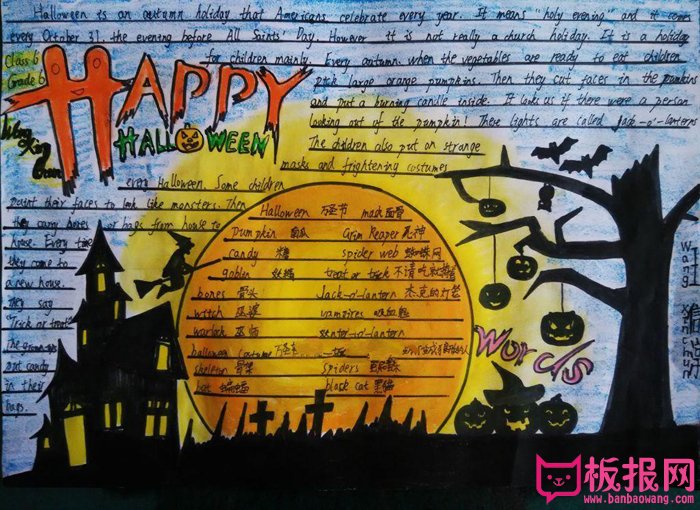 Halloween is an autumn holiday that Americans celebrate every year. It means "holy evening" and it comes
every October 31, the evening before All Saints' Day. However it is not really a church holiday. It is a holiday
for children mainly. Every autumn, when the vegetables are ready to eat children
pick large orange pumpkins. Then they cut faces in the pumpkins
and put a burning candle inside. It looks as if there were a person
looking out of the pumpkin! These lights are called jack-o'-lanterns
The children also put on strange
masks and frightening costumes
every Halloween. Some children
paint their faces to look like monsters. Then
they carry boxes or bags from house to
house. Every time
they come to
a new house.
they say
Trick or treat!
The grown-ups
put candy
in their
bags.
Class 6
Grade 6
HAPPY
HALLOWEEN
Halloween 万圣节 mask 面骨
Pumpkin 南瓜 Grim Reaper 死神
candy 糖 spider web 蜘蛛网
goblin 妖精 treat or trick 不请吃就捣蛋
bones 骨头 Jack-o'-lantern 杰克的灯笼
witch 巫婆 vampires 吸血鬼
warlock 巫师
costume
skeleton 骨架 spiders 蜘蛛
bat 蝙蝠 black cat 黑猫
Words
板报网
www.banbaowang.com